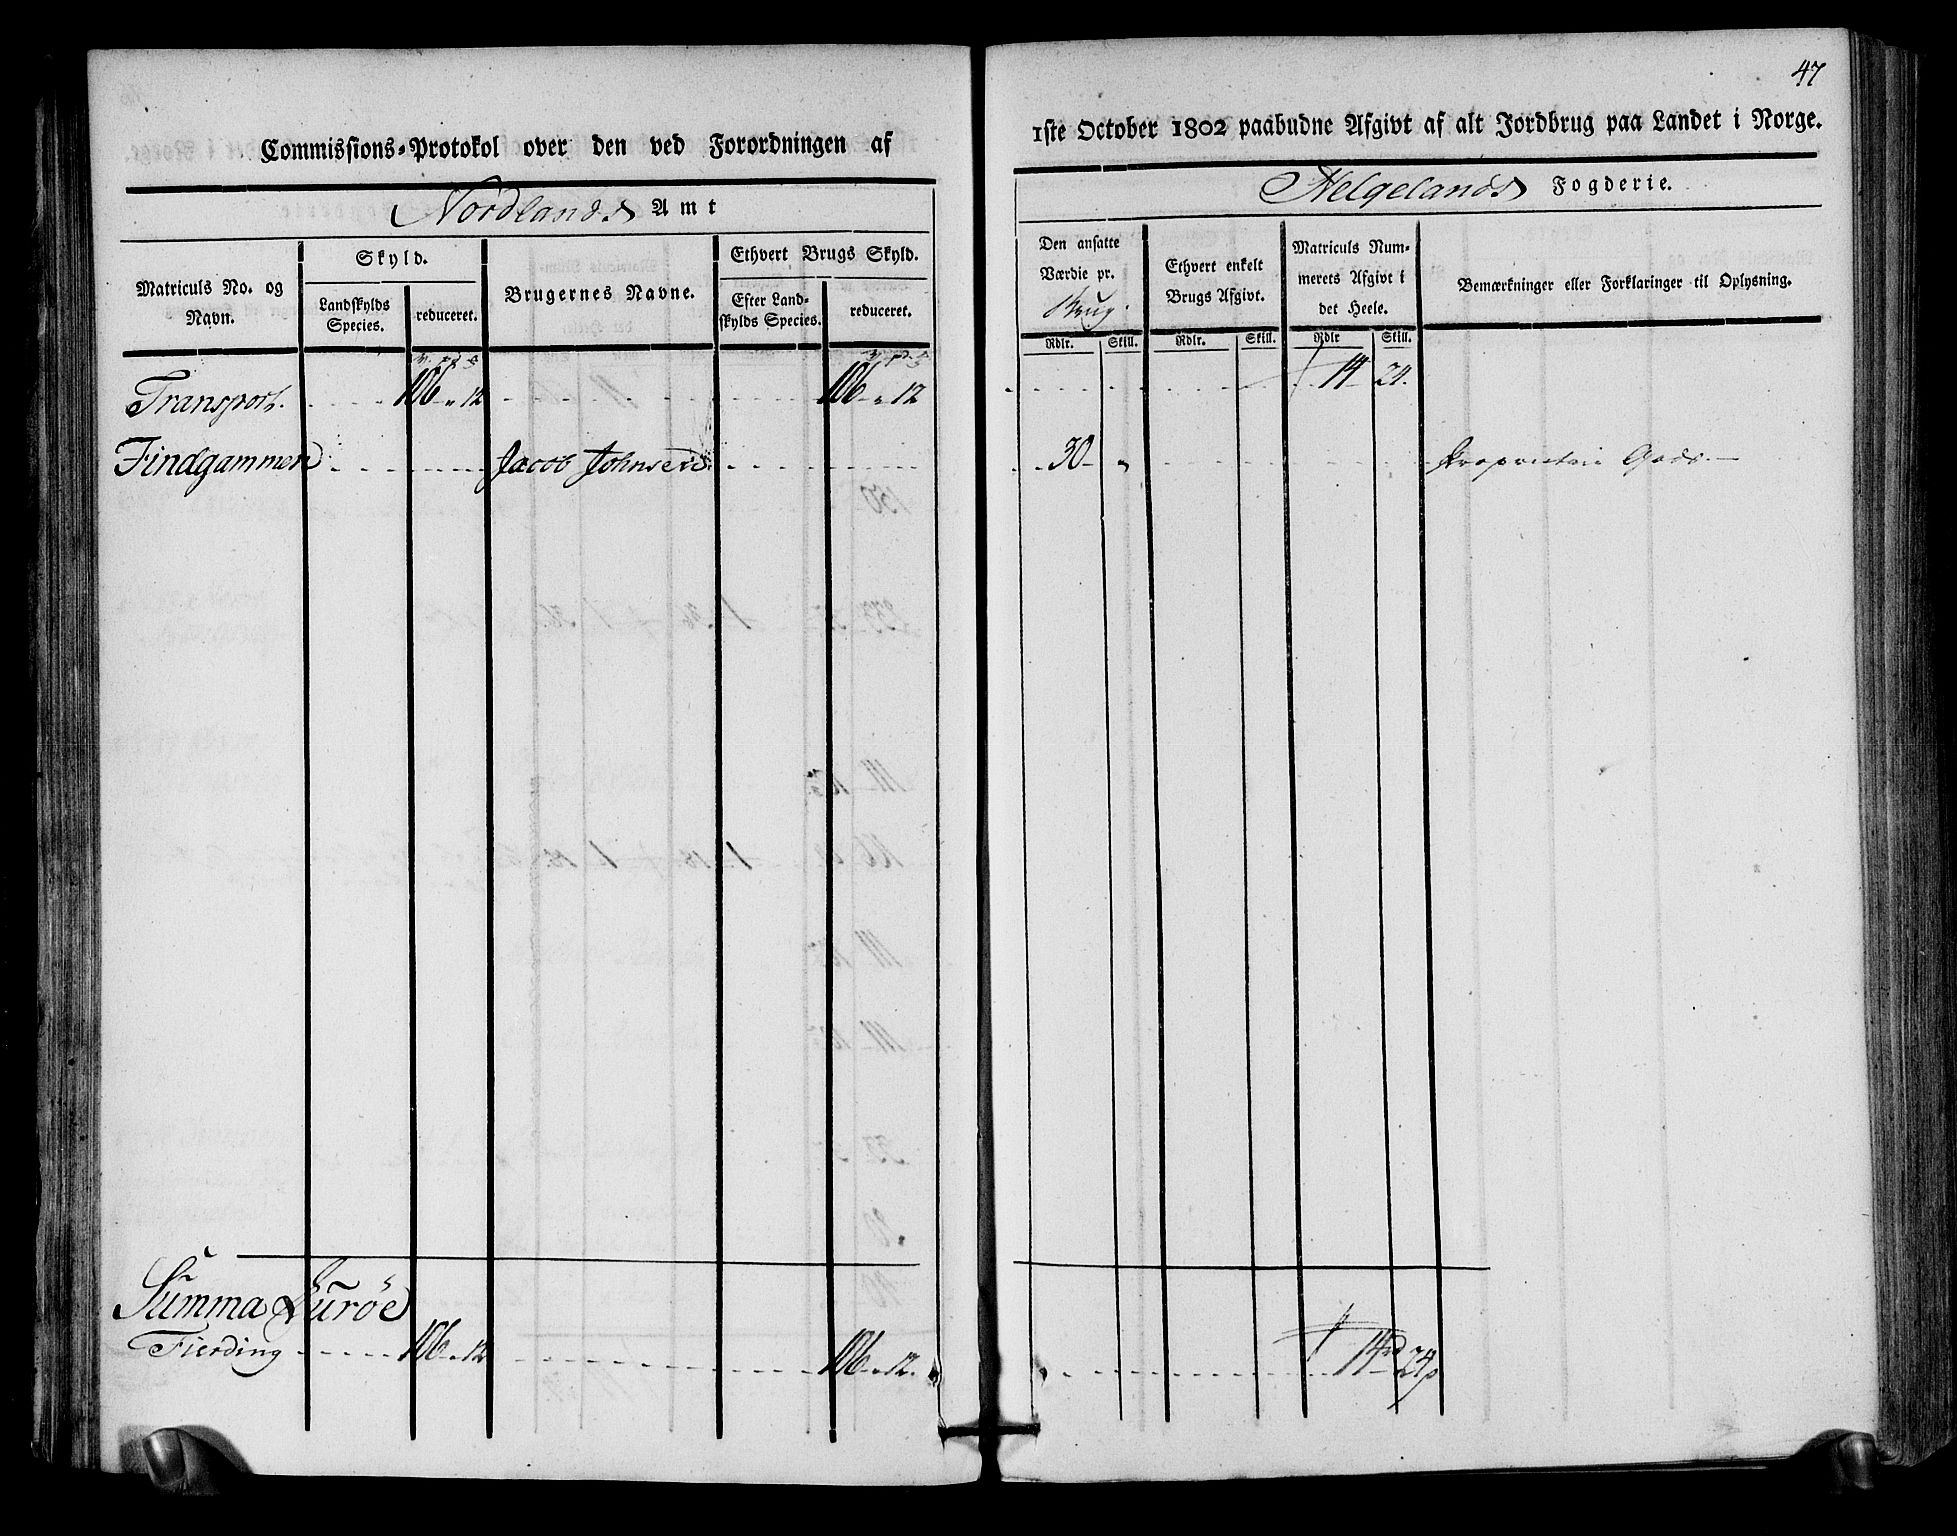 47
Commissions-Protokol over den ved Forordningen af
1ste October 1802 paabudne Afgivt af alt Jordbrug paa Landet i Norge.
Nordlands Amt
Helgelands Fogderie.
Matriculs No. og Navn.
Skyld.
Landskylds Species.
reduceret.
Brugernes Navne.
Ethvert Brugs Skyld.
Efter Landskylds Species.
reduceret.
Den ansatte Værdie pr. Brug.
Ethvert enkelt Brugs Afgivt.
Matriculs Nummerets Afgivt i det Heele.
Bemærkninger eller Forklaringer til Oplysning.
Rdlr. Skill. Rdlr. Skill. Rdlr Skill.
Transport. 106 " 12 106 " 12 14 24.
Findgammen Jacob Johnsen 30 " Proprietair Gods
Summa Lurøe
Fierding 106 " 12 106 " 12. 14 24